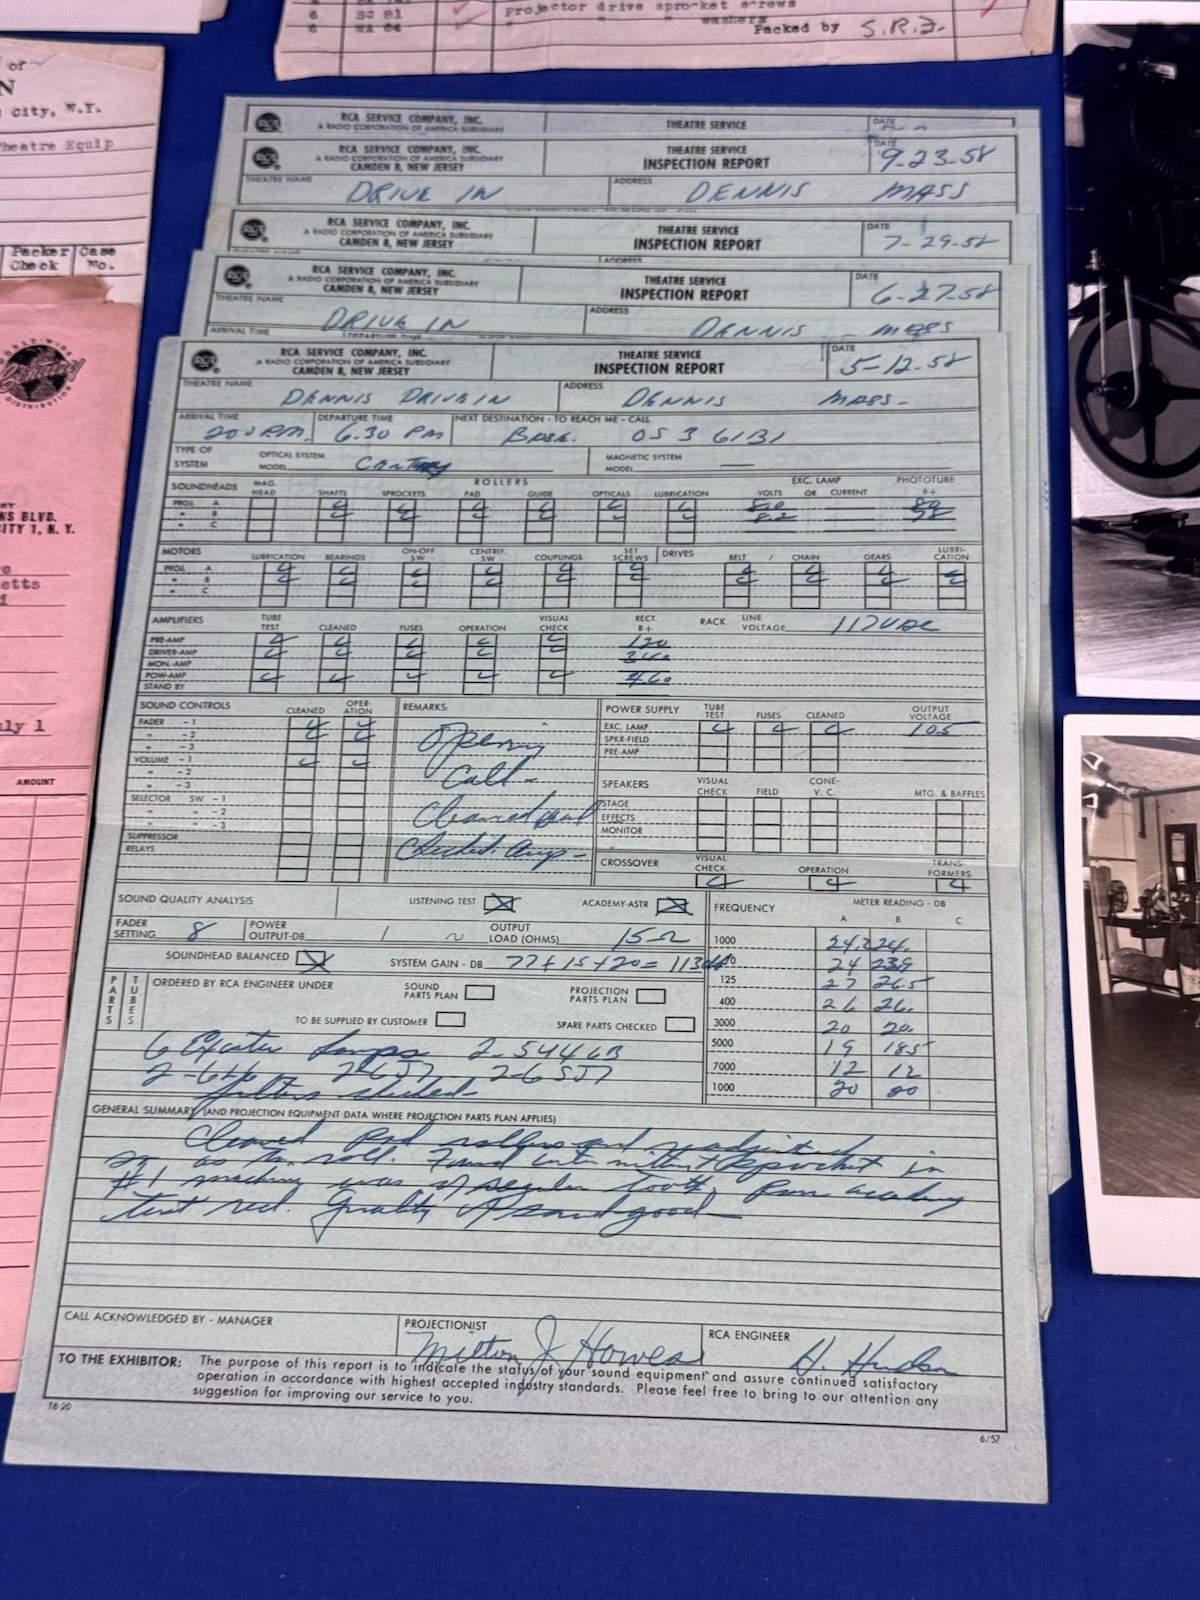 6 SC 81 projector drive sprocket screws
6 " " washers
Packed by S.R.J.
of
N
City, N.Y.
Theatre Equip
Packer Check Case No.
WORLD-WIDE
Century
DISTRIBUTION
NS BLVD.
CITY 1, N.Y.
etts
ly 1
AMOUNT
RCA RCA SERVICE COMPANY, INC. THEATRE SERVICE DATE
A RADIO CORPORATION OF AMERICA SUBSIDIARY
RCA RCA SERVICE COMPANY, INC. THEATRE SERVICE DATE
A RADIO CORPORATION OF AMERICA SUBSIDIARY INSPECTION REPORT 9-23-58
CAMDEN 8, NEW JERSEY
THEATRE NAME DRIVE IN ADDRESS DENNIS MASS
RCA RCA SERVICE COMPANY, INC. THEATRE SERVICE DATE
A RADIO CORPORATION OF AMERICA SUBSIDIARY INSPECTION REPORT 7-29-58
CAMDEN 8, NEW JERSEY
RCA RCA SERVICE COMPANY, INC. THEATRE SERVICE DATE
A RADIO CORPORATION OF AMERICA SUBSIDIARY INSPECTION REPORT 6-27-58
CAMDEN 8, NEW JERSEY
THEATRE NAME DRIVE IN ADDRESS DENNIS MASS
ARRIVAL TIME
RCA RCA SERVICE COMPANY, INC. THEATRE SERVICE DATE
A RADIO CORPORATION OF AMERICA SUBSIDIARY INSPECTION REPORT 5-12-58
CAMDEN 8, NEW JERSEY
THEATRE NAME DENNIS DRIVE IN ADDRESS DENNIS MASS-
ARRIVAL TIME DEPARTURE TIME NEXT DESTINATION - TO REACH ME - CALL
200 P.M. 6.30 PM OS 3 6131
TYPE OF SYSTEM OPTICAL SYSTEM MODEL Century MAGNETIC SYSTEM MODEL —
ROLLERS EXC. LAMP PHOTOTUBE
SOUNDHEADS MAG. HEAD SHAFTS SPROCKETS PAD GUIDE OPTICALS LUBRICATION VOLTS OR CURRENT B+
PROJ. A
" B
" C
MOTORS LUBRICATION BEARINGS ON-OFF SW CENTRIF. SW COUPLINGS SET SCREWS DRIVES BELT / CHAIN GEARS LUBRI-CATION
PROJ. A
" B
" C
AMPLIFIERS TUBE TEST CLEANED FUSES OPERATION VISUAL CHECK RECT. B+ RACK LINE VOLTAGE 117VAC
PRE-AMP 120
DRIVER-AMP
MON.-AMP
POW-AMP 460
STAND BY
SOUND CONTROLS CLEANED OPER-ATION REMARKS: POWER SUPPLY TUBE TEST FUSES CLEANED OUTPUT VOLTAGE
FADER - 1 EXC. LAMP 10.5
" - 2 Opening SPKR-FIELD
" - 3 PRE-AMP
VOLUME - 1 Call -
" - 2 SPEAKERS VISUAL CHECK FIELD CONE-V. C. MTG. & BAFFLES
" - 3
SELECTOR SW - 1 Cleaned and STAGE
" " - 2 EFFECTS
" " - 3 Checked Amp - MONITOR
SUPPRESSOR
RELAYS CROSSOVER VISUAL CHECK OPERATION TRANS-FORMERS
SOUND QUALITY ANALYSIS LISTENING TEST ACADEMY-ASTR FREQUENCY METER READING - DB
A B C
FADER SETTING 8 POWER OUTPUT-DB / ~ OUTPUT LOAD (OHMS) 15Ω
SOUNDHEAD BALANCED SYSTEM GAIN - DB 77+15+20= 113db
1000 24.2 24.
70 24 23.9
125 27 26.5
400 26 26.
3000 20 20.
5000 19 18.5
7000 12 12
1000 20 20
PARTS TUBES ORDERED BY RCA ENGINEER UNDER SOUND PARTS PLAN PROJECTION PARTS PLAN
TO BE SUPPLIED BY CUSTOMER SPARE PARTS CHECKED
6 Exciter Lamps 2-5U4GB
2-6SJ7
GENERAL SUMMARY (AND PROJECTION EQUIPMENT DATA WHERE PROJECTION PARTS PLAN APPLIES)
Cleaned Pad rollers and readjusted
Found intermittent sprocket in
#1 machine was irregular tooth, Run academy
test reel. Quality of sound good
CALL ACKNOWLEDGED BY - MANAGER PROJECTIONIST RCA ENGINEER
Milton J Howes H. Hudson
TO THE EXHIBITOR: The purpose of this report is to indicate the status of your sound equipment and assure continued satisfactory
operation in accordance with highest accepted industry standards. Please feel free to bring to our attention any
suggestion for improving our service to you.
18-20
6/57